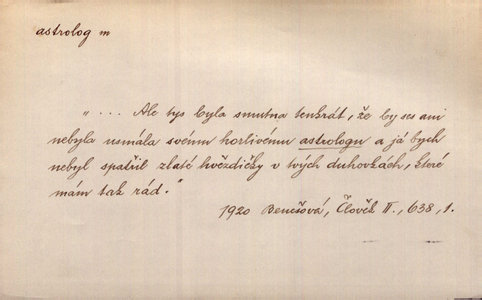 astrolog m
„ ... Ale tys byla smutna tenkrát, že by ses ani
nebyla usmála svému horlivému astrologu a já bych
nebyl spatřil zlaté hvězdičky v tvých duhovkách, které
mám tak rád."
1920 Benešová, Člověk II., 638, 1.